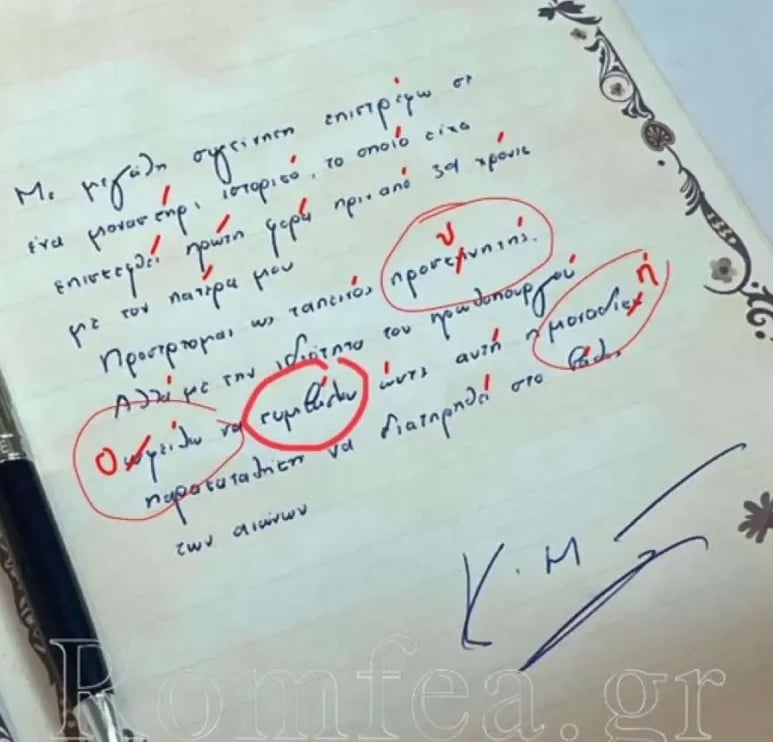 Με μεγάλη συγκίνηση επιστρέφω σε
ένα μοναστήρι ιστορικό, το οποίο είχα
επισκεφθεί πρώτη φορά πριν από 39 χρόνια
με τον πατέρα μου
Προσέρχομαι ως ταπεινός προσκυνητής.
Αλλά με την ιδιότητα του πρωθυπουργού
να ώστε αυτή η
να διατηρηθεί στο
των αιώνων
Κ. Μ
Romfea.gr